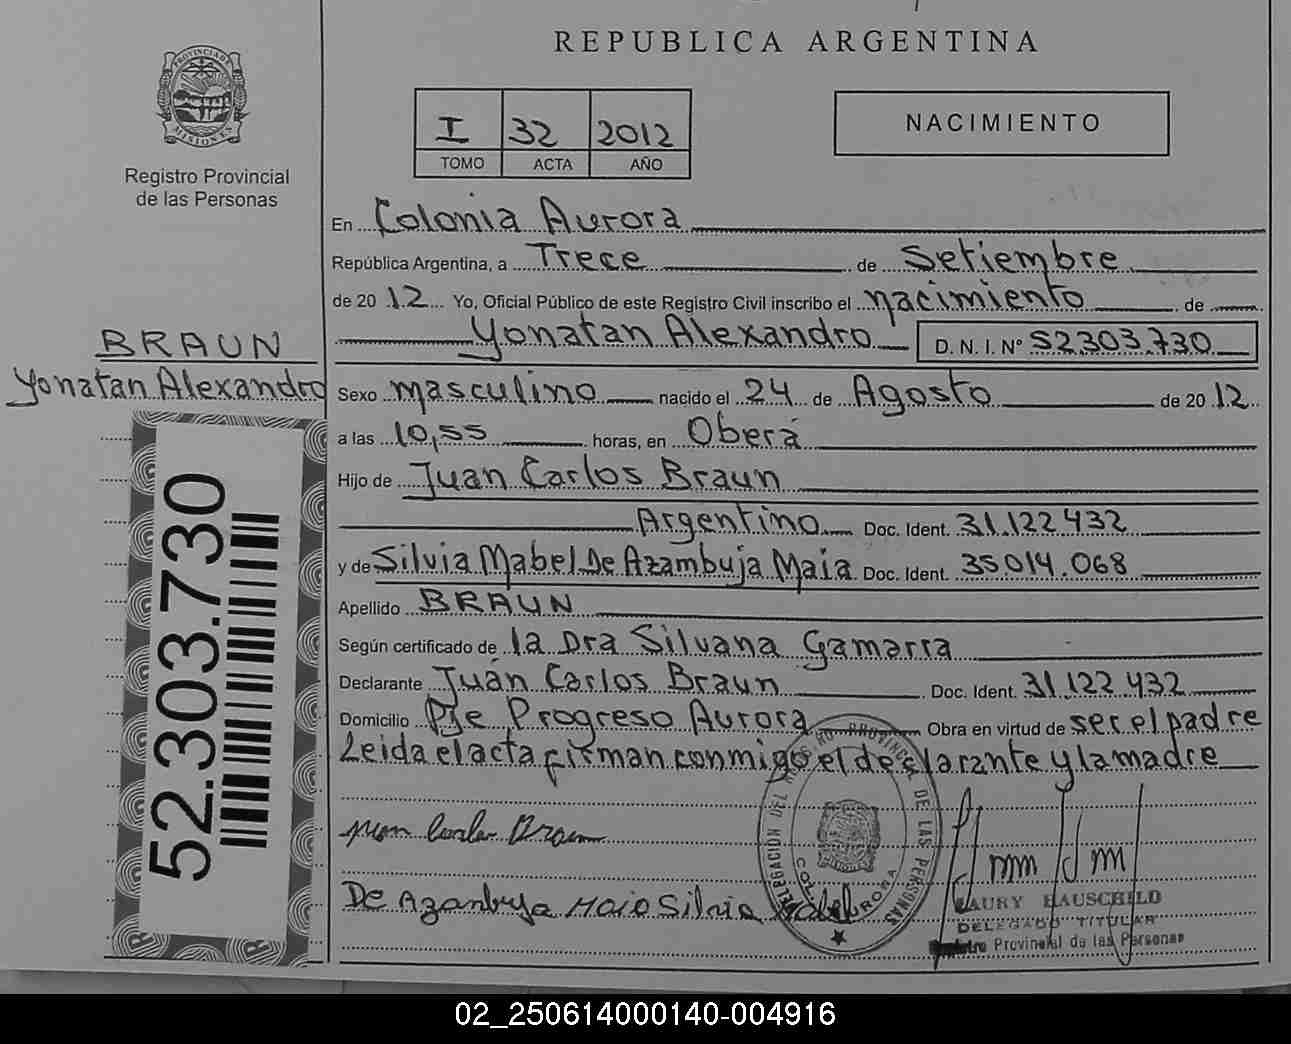 PROVINCIA DE
MISIONES
Registro Provincial
de las Personas
BRAUN
Yonatan Alexandro
52.303.730
REPUBLICA ARGENTINA
I 32 2012
TOMO ACTA AÑO
NACIMIENTO
En Colonia Aurora
República Argentina, a Trece de Setiembre
de 20 12 Yo, Oficial Público de este Registro Civil inscribo el nacimiento de
Yonatan Alexandro D. N. I. N° 52.303.730
Sexo masculino nacido el 24 de Agosto de 20 12
a las 10,55 horas, en Oberá
Hijo de Juan Carlos Braun
Argentino Doc. Ident. 31.122.432
y de Silvia Mabel De Azambuja Maia Doc. Ident. 35014.068
Apellido BRAUN
Según certificado de la Dra Silvana Gamarra
Declarante Juán Carlos Braun Doc. Ident. 31.122.432
Domicilio Pje Progreso Aurora Obra en virtud de ser el padre
Leida el acta firman conmigo el declarante y la madre
Juan Carlos Braun
De Azambuja Maia Silvia Mabel
DELEGACIÓN DEL REGISTRO PROVINCIAL DE LAS PERSONAS
COL. AURORA
LAURY HAUSCHILD
DELEGADO TITULAR
Registro Provincial de las Personas
02_250614000140-004916